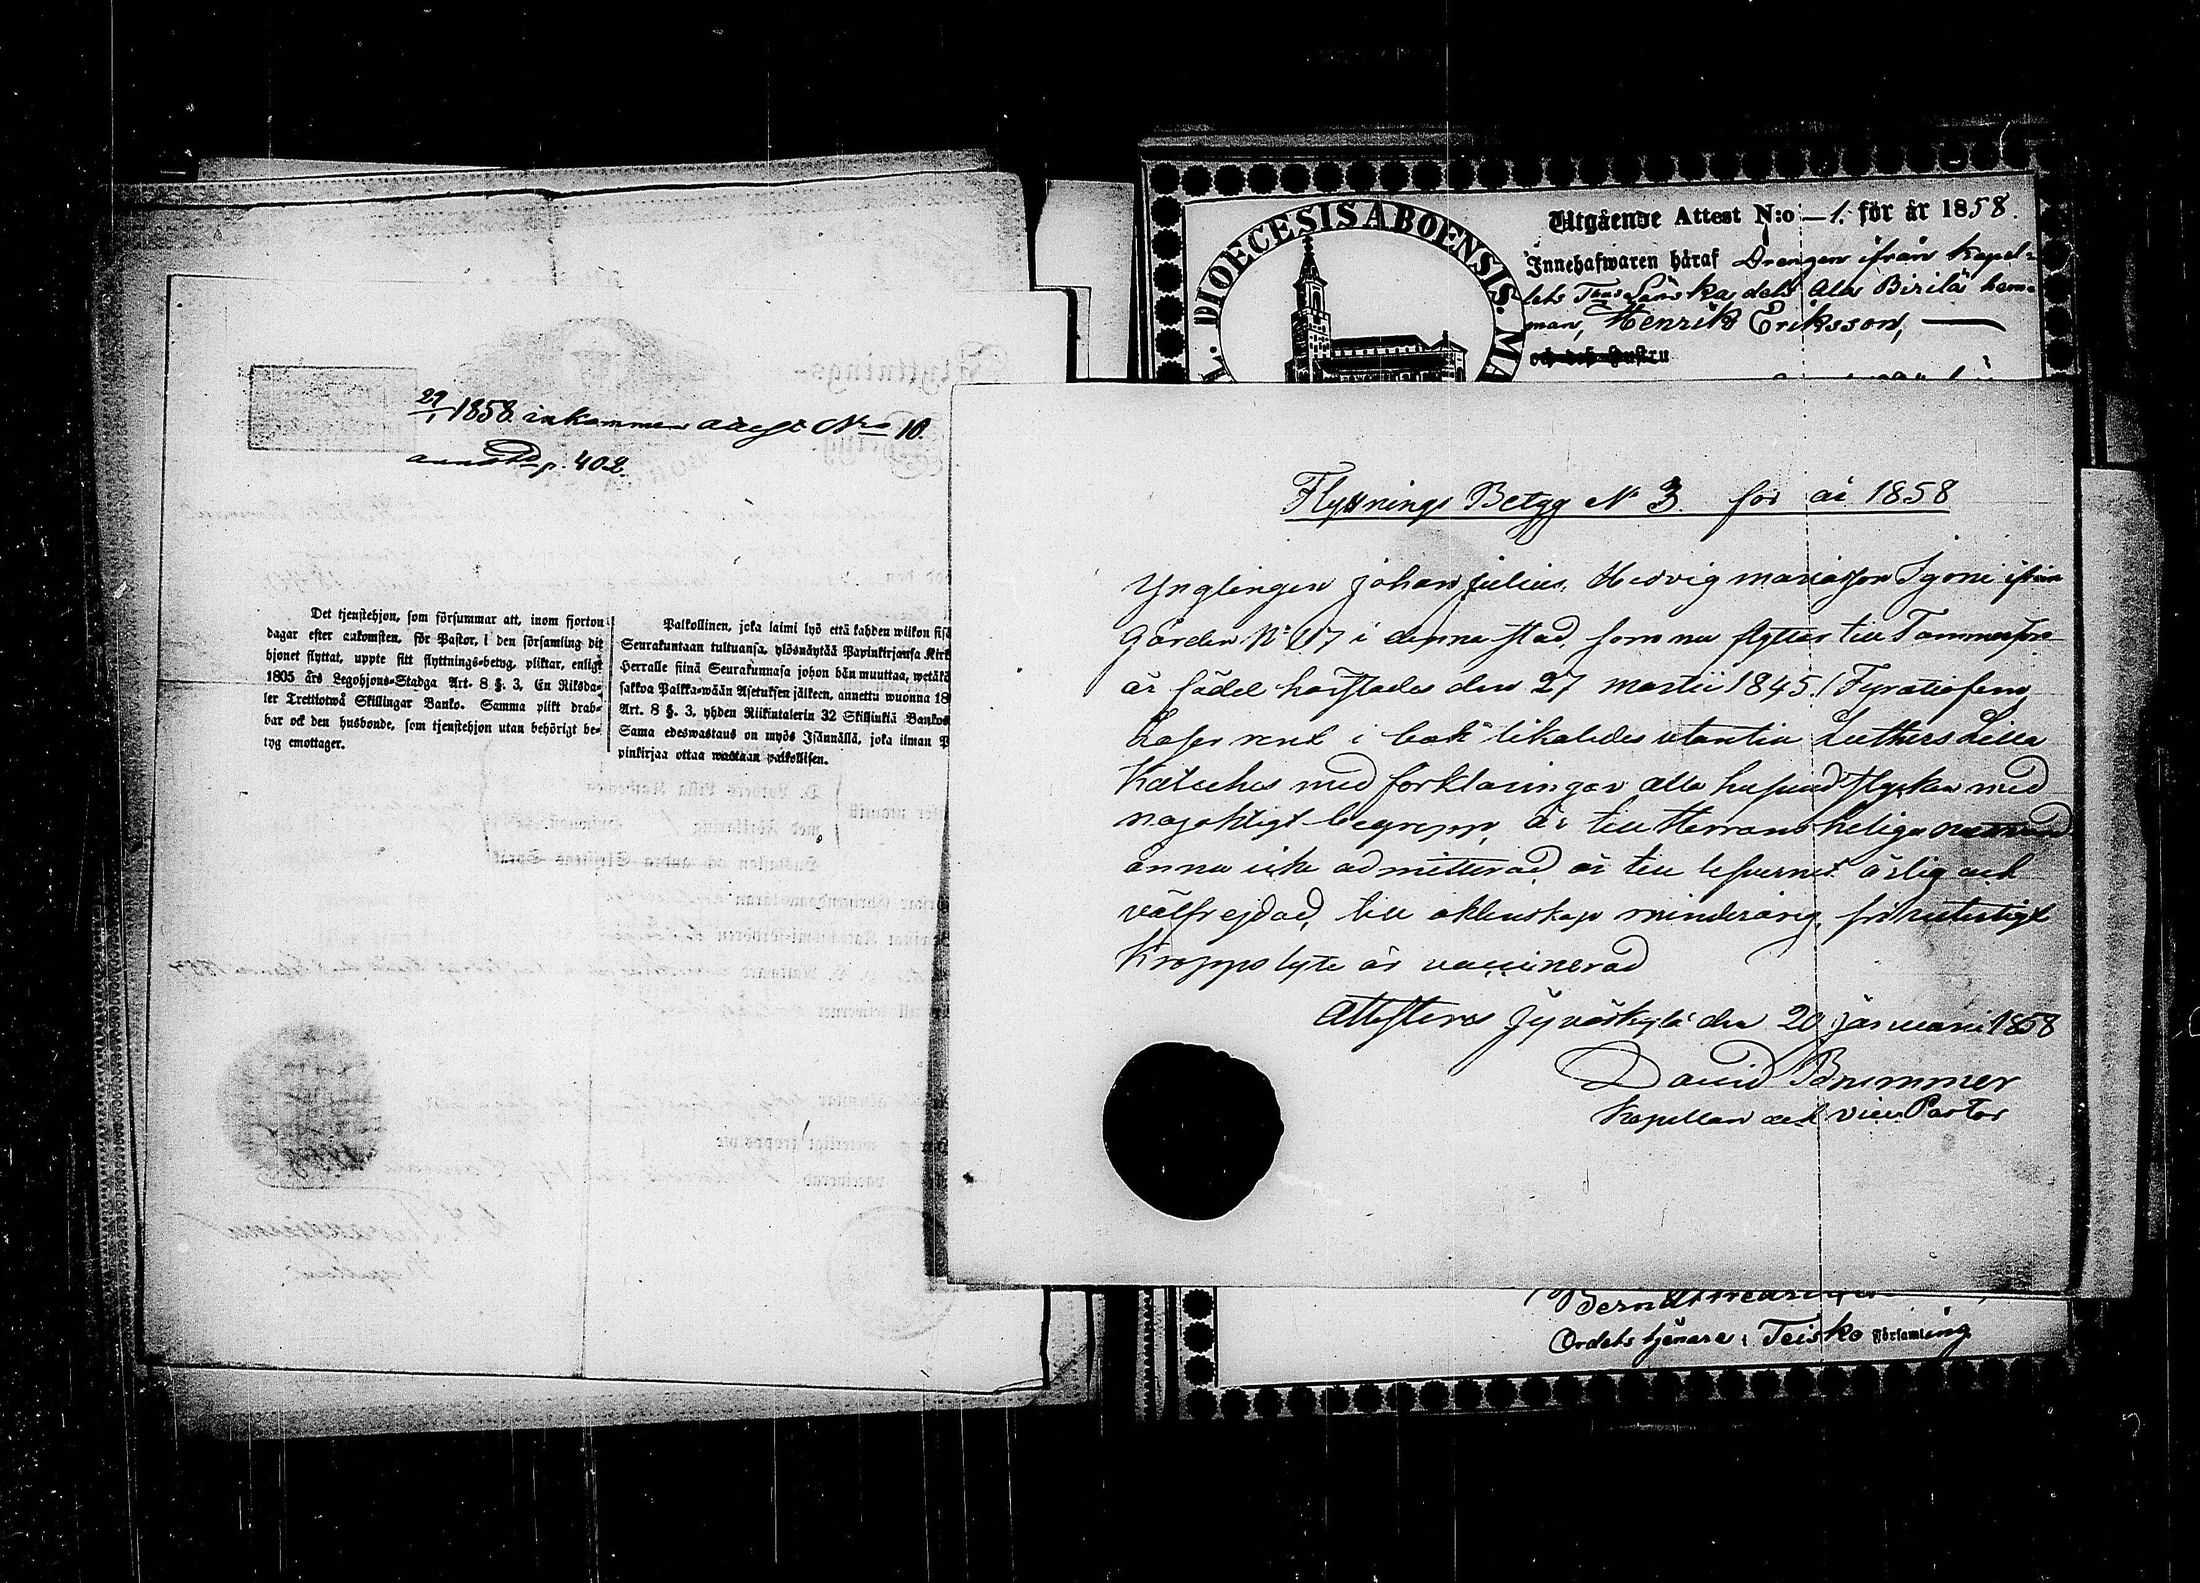 29/1 1858. inkommen attest No 10.
p. 402.
Det tjenstehjon, som försummar att, inom fjorton
dagar efter ankomsten, för Pastor, i den församling dit
hjonet flyttat, uppte sitt flyttnings-betyg, pliktar, enligt
1805 års Legohjons-Stadga Art. 8 §. 3, En Riksda-
ler Trettiotwå Skillingar Banko. Samma plikt drab-
bar ock den husbonde, som tjenstehjon utan behörigt be-
tyg emottager.
Palkollinen, joka laimi lyö että kahden wiikon sisä
Seurakuntaan tultuansa, ylösnäytää Papinkirjansa Kirk
Herralle siinä Seurakunnasa johon hän muuttaa, wetäkö
sakkoa Palkka-wään Asetuksen jälkeen, annettu wuonna 18
Art. 8 §. 3, yhden Riikintalerin 32 Skillinkiä Bankos
Sama edeswastaus on myös Isännällä, joka ilman P
pinkirjaa ottaa wastaan palkollisen.
DIOECESIS ABOENSIS. MA
Utgående Attest N:o 1. för år 1858.
Innehafwaren häraf Drengen ifrån Kapel-
lets Länska dels Ala Birilä hem-
man, Henrik Eriksson,
och dess hustru
Flyttnings Betyg No 3. för år 1858
Ynglingen Johan Julius, Hedvig mariasson Sjöni ifrån
Gården No 117 i denna stad, som nu flyttar till Tammerfors
är född härstädes den 27 martii 1845. (Fyratiofem)
Läser rent i bok likaledes utantill Luthers Lilla
Kateches med förklaringar alla hufvudstycken med
nöjaktigt begrepp, är till Herrans Heliga nattvard
ännu icke admitterad, är till lefvernet ärlig och
välfrejdad, till äktenskap minderårig, fri
Kroppslyte är vaccinerad
Attesteras Jyväskylä den 20 januari 1858
David Brummer
Kapellan och vice Pastor
Ordets tjenare i Teisko Församling